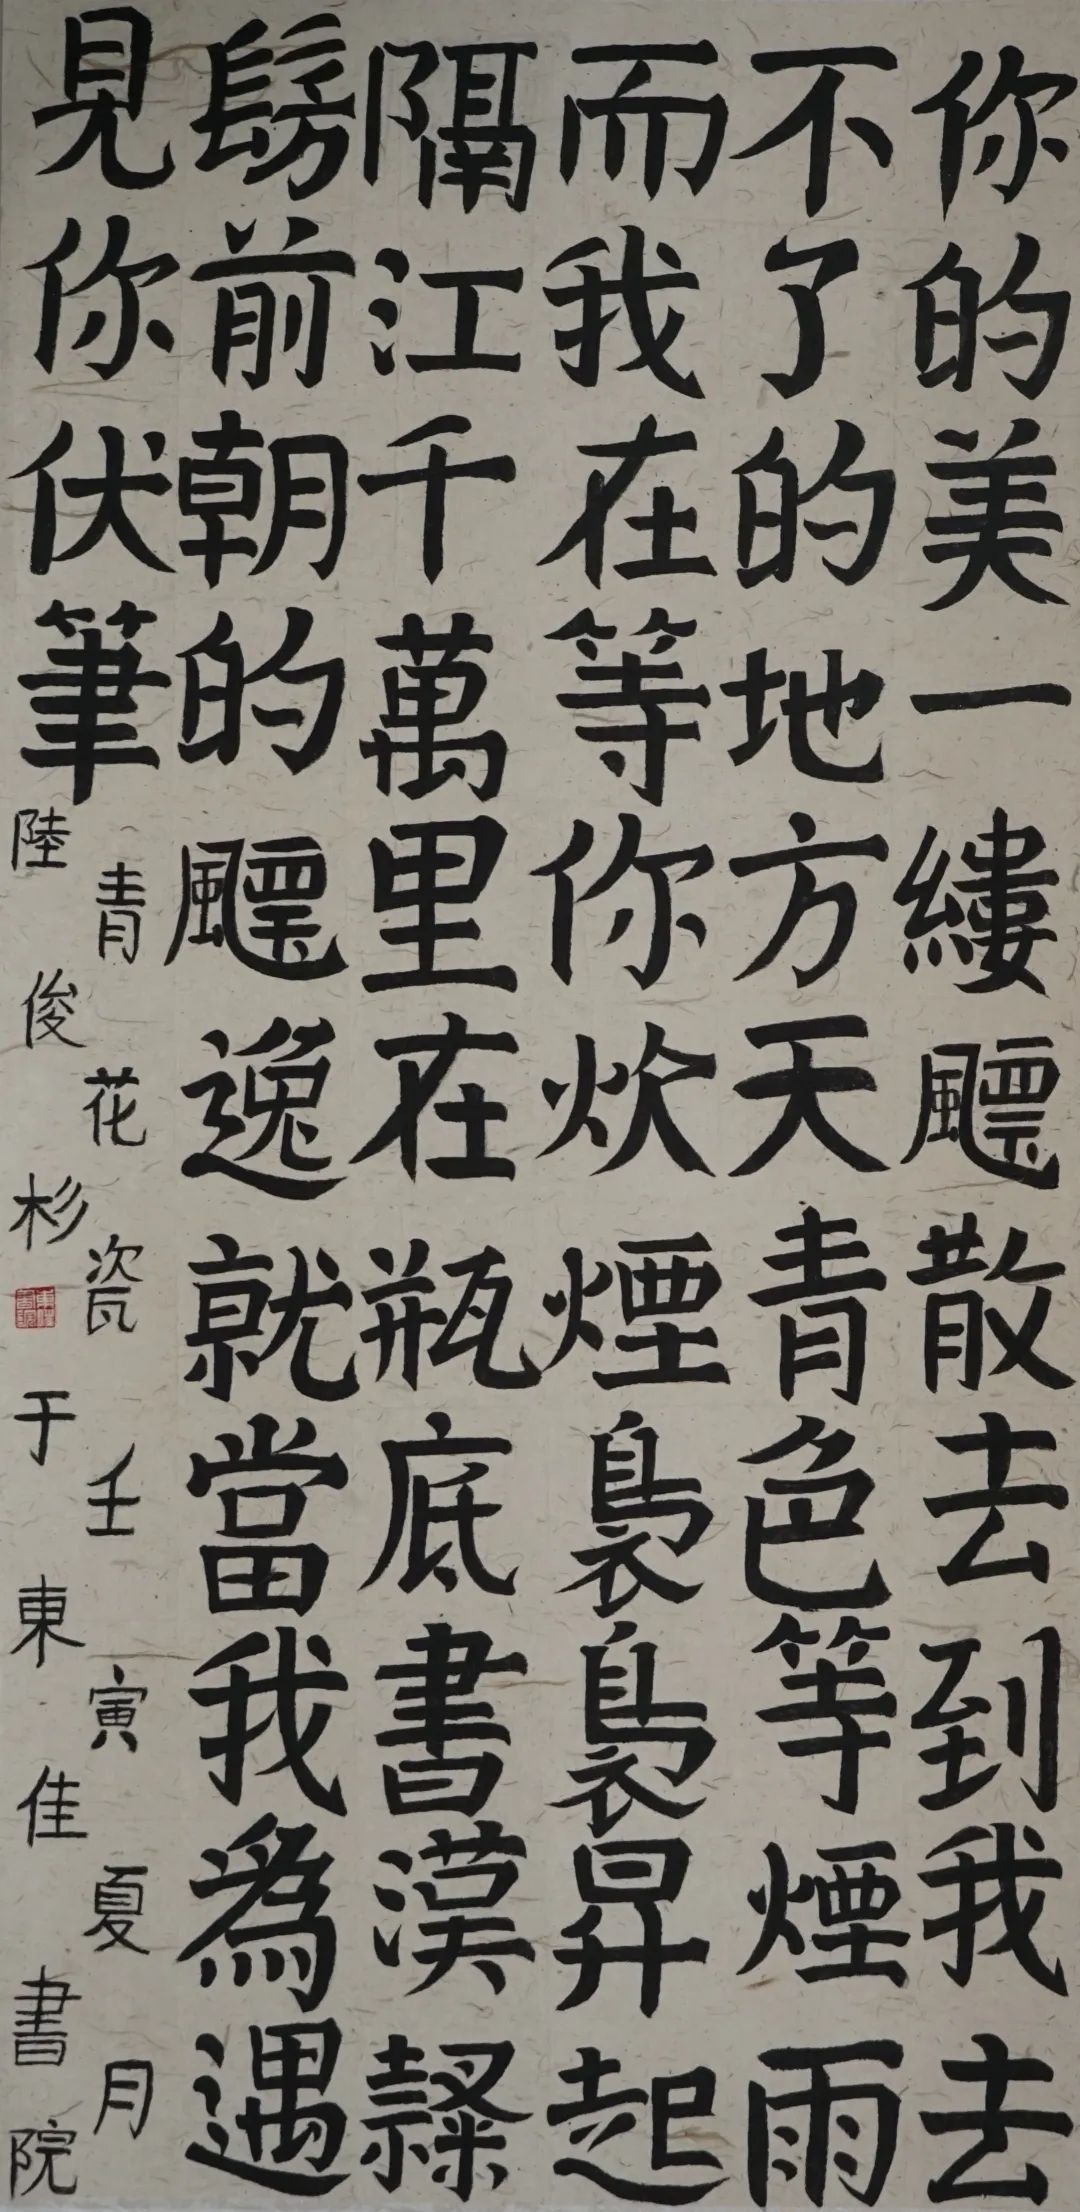 你的美一縷飃散去到我去
不了的地方天青色等煙雨
而我在等你炊煙裊裊昇起
隔江千萬里在瓶底書漢隸
髣前朝的飃逸就當我為遇
見你伏筆
青花瓷壬寅夏月
陸俊杉于東佳書院